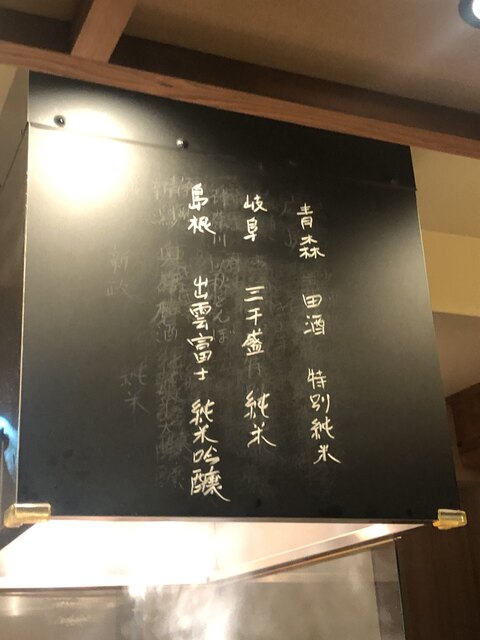 青森 田酒 特別純米
岐阜 三千盛 純米
島根 出雲富士 純米吟醸
新政 純米